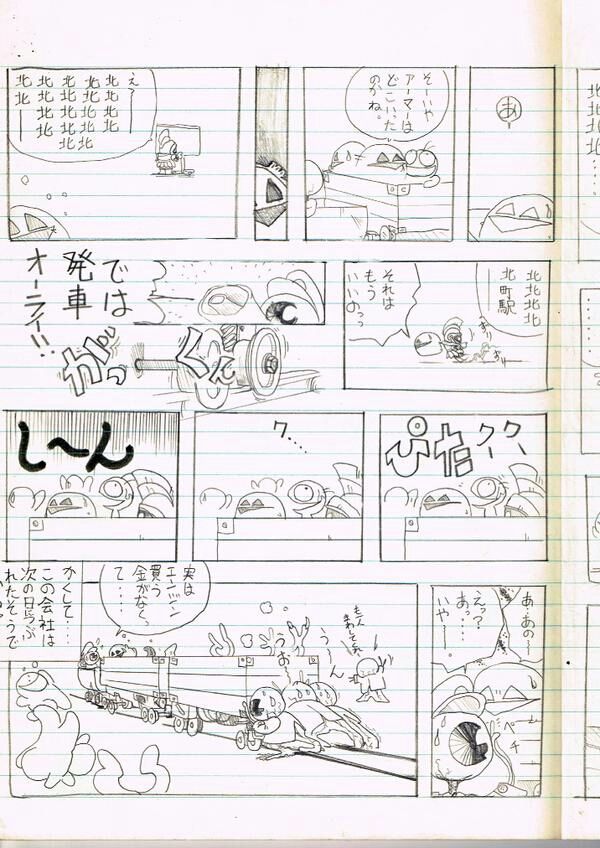 北北北北北……
あ
そーいや
アーマーは
どこいった
のかね。
え〜ー
北北北北
北北北北北
北北北北北
北北北北
北北ー
北北北北
ー北町駅
それは
もう
いいのっっ
では
発車
オーライ!!
がっくん
クークー
ぴた
ク…
し〜ん
あ・あの〜
えっ?
あっ…
いや〜…。
ペチ
実は
エンジン
買う
金がなく
て……
う〜ん
うお〜
かくして……
この会社は
次の日つぶ
れたそうで